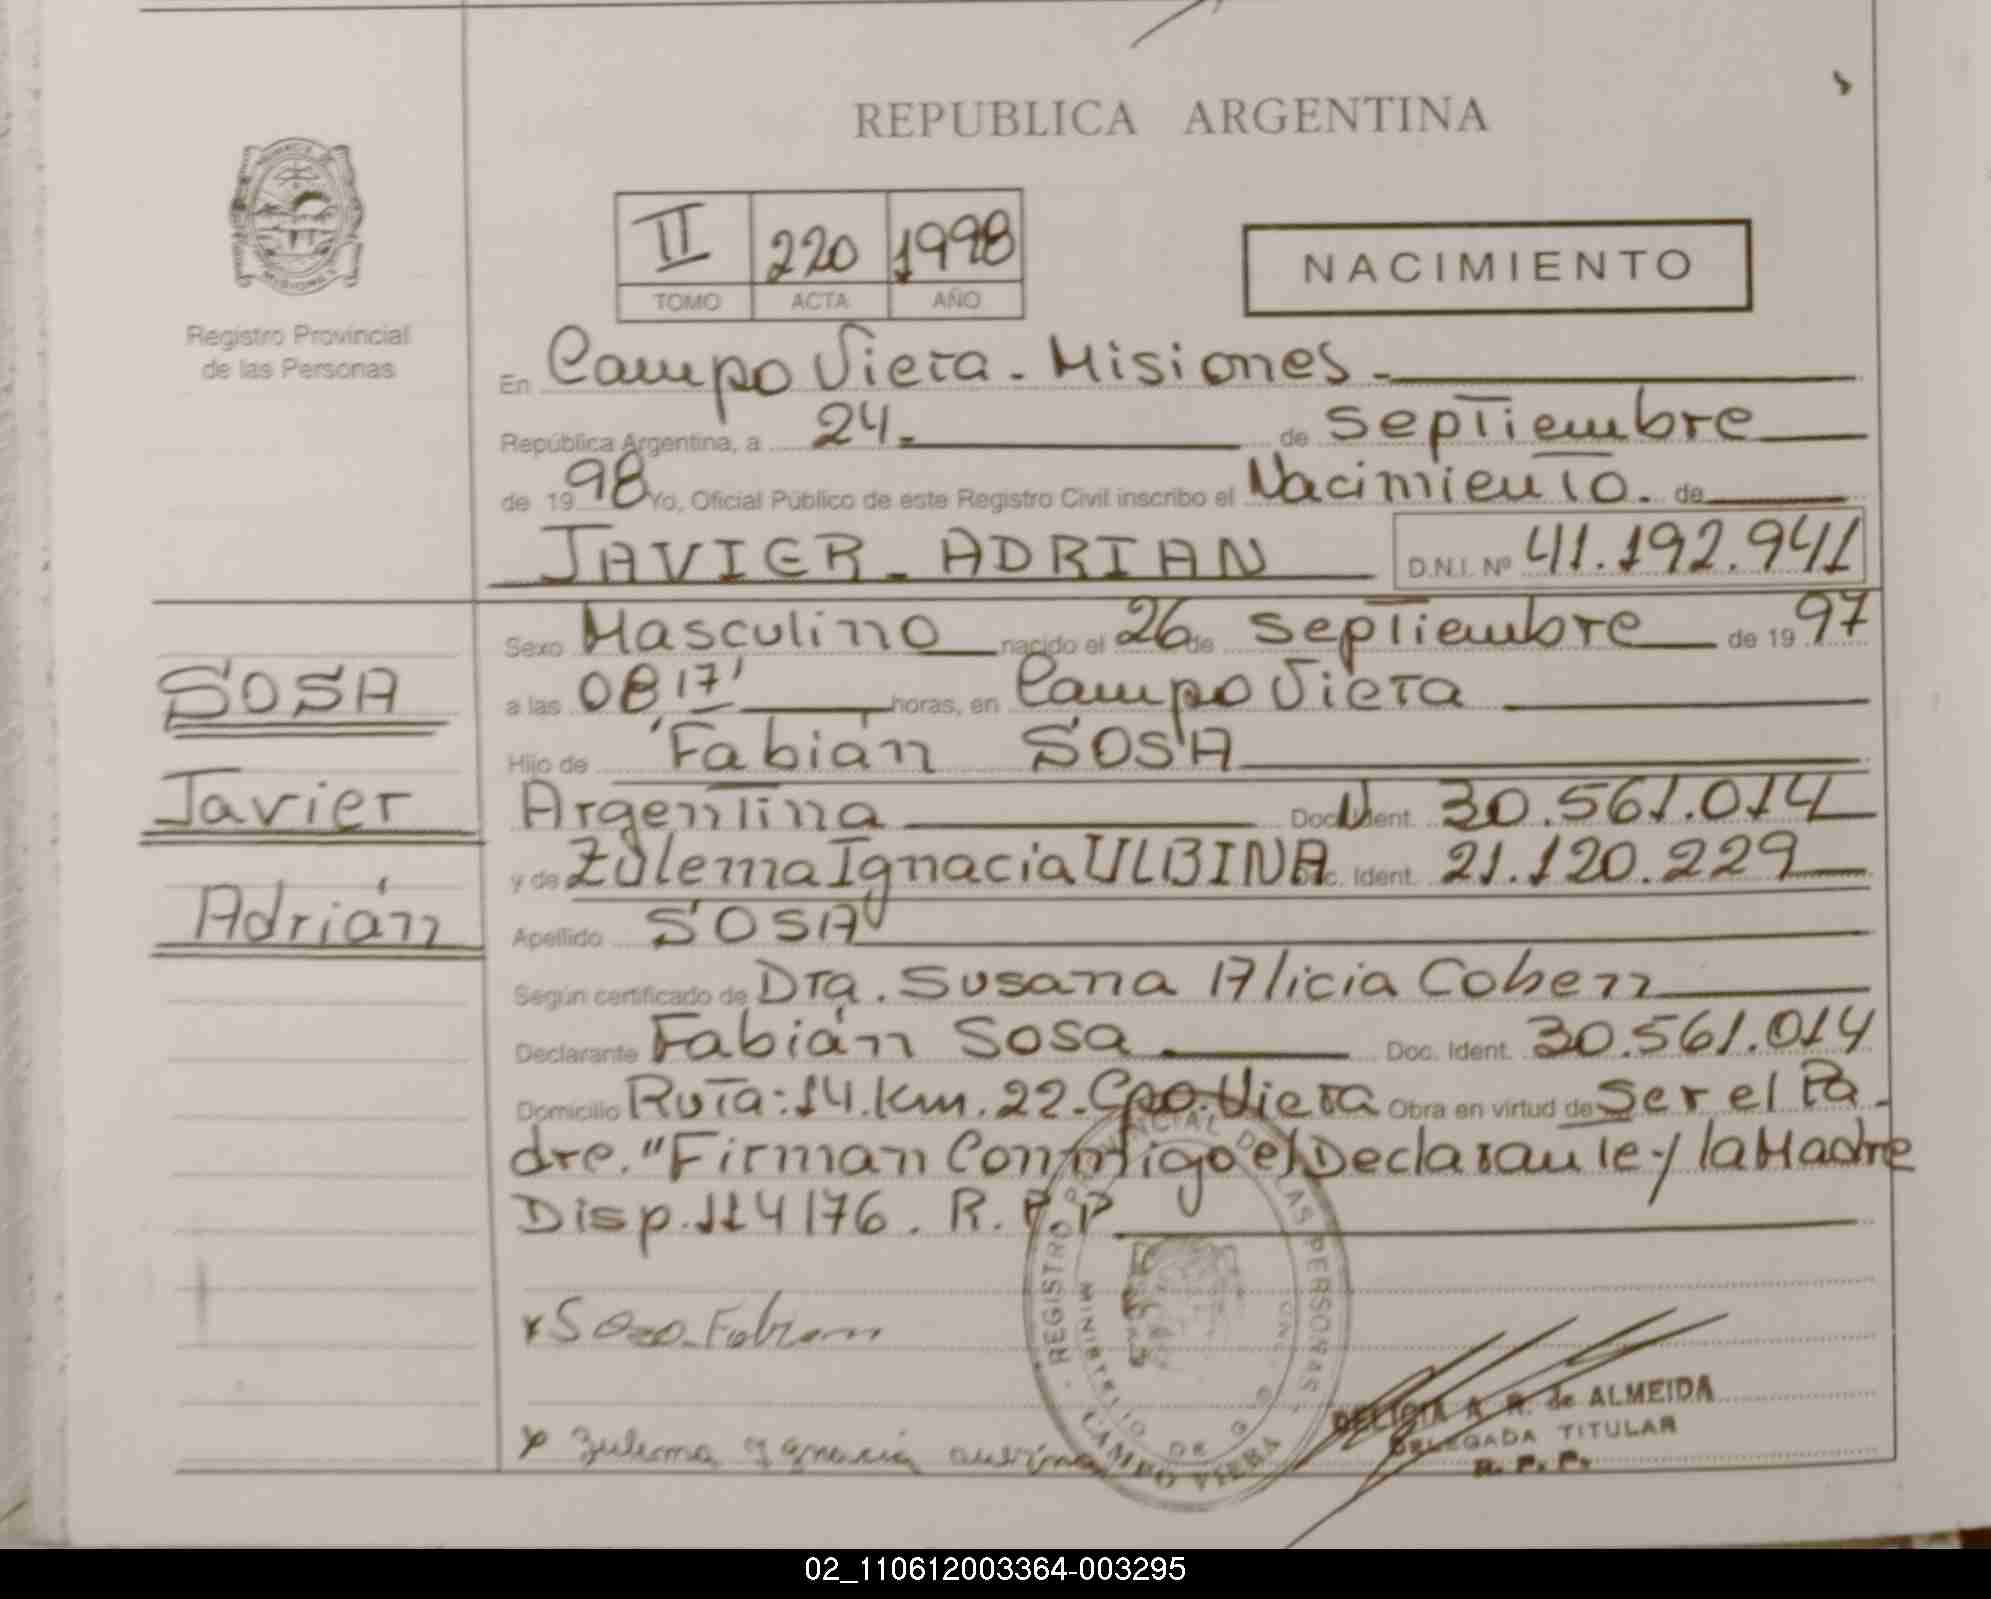 REPUBLICA ARGENTINA
II 220 1998
TOMO ACTA AÑO
NACIMIENTO
Registro Provincial
de las Personas
En Campo Viera - Misiones -
República Argentina, a 24 - de septiembre
de 1998 Yo, Oficial Público de este Registro Civil inscribo el Nacimiento. de
JAVIER - ADRIAN D.N.I. Nº 41.192.941
Sexo Masculino nacido el 26 de septiembre de 1997
a las 08 17' horas, en Campo Viera
Hijo de Fabián SOSA
Argentina Doc. Ident. 30.561.014
y de Zulema Ignacia ULBINA Doc. Ident. 21.120.229
Apellido SOSA
Según certificado de Dra. Susana Alicia Cohen
Declarante Fabián Sosa Doc. Ident. 30.561.014
Domicilio Ruta: 14. km. 22 - Cpo. Viera Obra en virtud de Ser el Pa-
dre. "Firman Conmigo el Declarante y la Madre
Disp. 114/76. R.P.P
SOSA
Javier
Adrián
x Soza Fabian
x Zulema Ygnacia
REGISTRO PROVINCIAL DE LAS PERSONAS
MINISTERIO DE GOB
CAMPO VIERA
DELICIA A. R. de ALMEIDA
DELEGADA TITULAR
R. P. P.
02_110612003364-003295